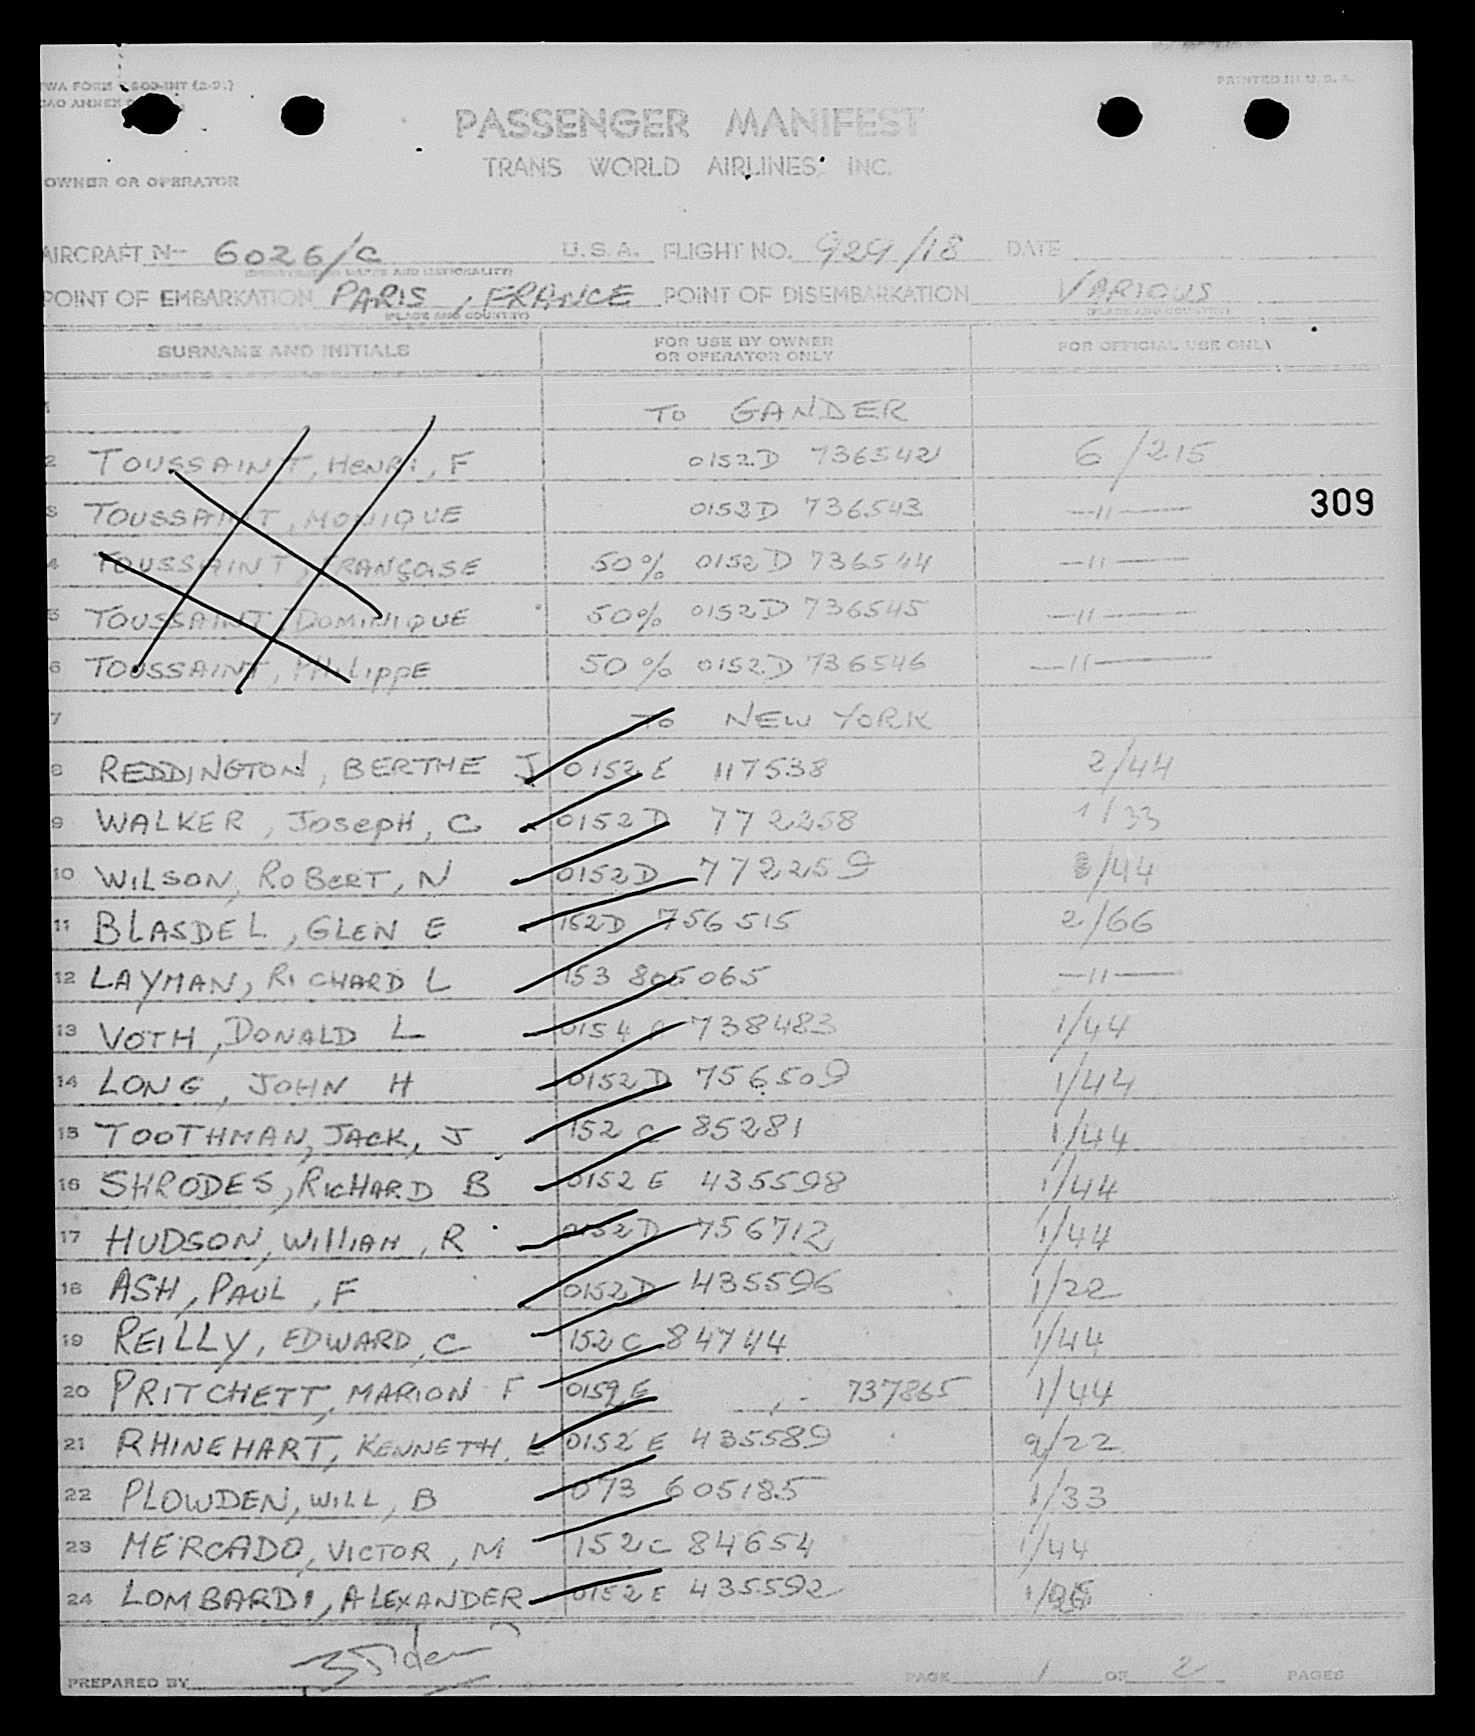 TWA FORM
PRINTED IN U. S. A.
PASSENGER MANIFEST
TRANS WORLD AIRLINES, INC.
OWNER OR OPERATOR
AIRCRAFT N-- 6026/C U.S.A. FLIGHT NO. 929/18 DATE
POINT OF EMBARKATION PARIS, FRANCE POINT OF DISEMBARKATION VARIOUS
(PLACE AND COUNTRY) (PLACE AND COUNTRY)
SURNAME AND INITIALS FOR USE BY OWNER OR OPERATOR ONLY FOR OFFICIAL USE ONLY
1 TO GANDER
2 TOUSSAINT, HENRI, F 0152D 736542 6/215
3 TOUSSAINT, MONIQUE 0152D 736543 —11—
309
4 TOUSSAINT, FRANÇOISE 50% 0152D 736544 —11—
5 TOUSSAINT, DOMINIQUE 50% 0152D 736545 —11—
6 TOUSSAINT, PHILIPPE 50% 0152D 736546 —11—
7 TO NEW YORK
8 REDDINGTON, BERTHE J 0152 E 117538 2/44
9 WALKER, JOSEPH, C 0152 D 772258 1/33
10 WILSON, ROBERT, N 0152D 772259 /44
11 BLASDEL, GLEN E 152D 756515 2/66
12 LAYMAN, RICHARD L 153 805065 —11—
13 VOTH, DONALD L 0154 738483 1/44
14 LONG, JOHN H 0152D 756509 1/44
15 TOOTHMAN, JACK, J 152 C 85281 1/44
16 SHRODES, RICHARD B 0152 E 435598 1/44
17 HUDSON, WILLIAM, R 0152D 756712 1/44
18 ASH, PAUL, F 0152D 435596 1/22
19 REILLY, EDWARD, C 152 C 84744 1/44
20 PRITCHETT, MARION F 0152 E 737865 1/44
21 RHINEHART, KENNETH, L 0152 E 435589 2/22
22 PLOWDEN, WILL, B 073 605185 1/33
23 MERCADO, VICTOR, M 152C 84654 1/44
24 LOMBARDI, ALEXANDER 0152 E 435592
PREPARED BY PAGE 1 OF 2 PAGES